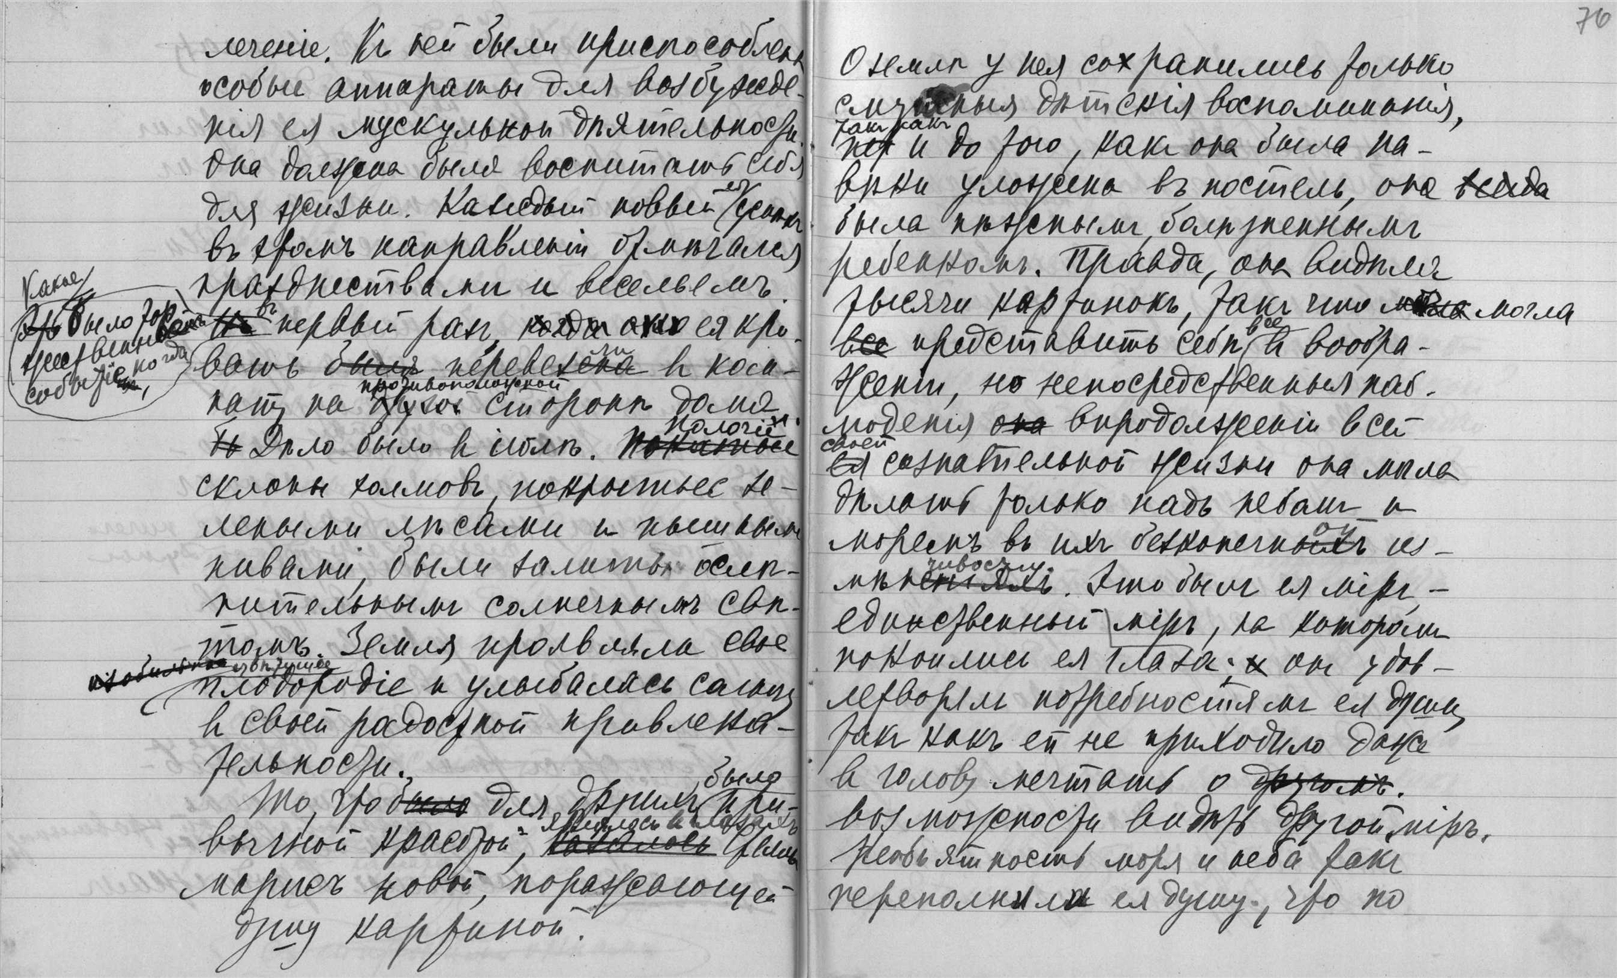 76
леченіе. Къ ней были приспособлены
особые аппараты для возбужде-
нія ея мускульной дѣятельности.
Она должна была воспитать себя
для жизни. Каждый новый ея успѣхъ
въ этомъ направленіи отмѣчался
празднествами и весельемъ.
Какое
это было тор
жественное
событіе, когда
въ первый разъ, когда она ея кро-
вать была перевезена ли в ком-
противоположной
нату на другой сторонѣ дома.
Пологіе
Дѣло было в іюлѣ. Покатые
склоны холмовъ, покрытые зе-
леными лѣсами и пышными
нивами, были залиты ослѣ-
пительнымъ солнечнымъ свѣ-
томъ. Земля проявляла свое
изобильное цвѣтущее
плодородіе и улыбалась солнцу
в своей радостной привлека-
тельности.
было
То, что было для другихъ при-
явилось в глазахъ
вычной красотой, казалось
Марисъ новой, поражающей
душу картиной.
О землѣ у нея сохранились только
смутныя дѣтскія воспоминанія,
такъ какъ
и до того, какъ она была на-
вѣки уложена въ постель, она всегда
была нѣжнымъ, болѣзненнымъ
ребенкомъ. Правда, она видѣла
тысячи картинокъ, такъ что могла
все представить себѣ все в вообра-
женіи, но непосредственныя наб-
люденія она впродолженіи всей
своей
ея сознательной жизни она могла
дѣлать только надъ небомъ и
моремъ въ ихъ безконечныхъ ой из-
чивости.
мѣненіяхъ. Это былъ ея міръ, -
единственный міръ, на которомъ
покоились ея глаза; и онъ удов-
летворялъ потребностямъ ея души,
такъ какъ ей не приходило даже
в голову мечтать о другомъ.
возможности видѣть другой міръ.
Необъятность моря и неба такъ
переполняла ея душу, что по